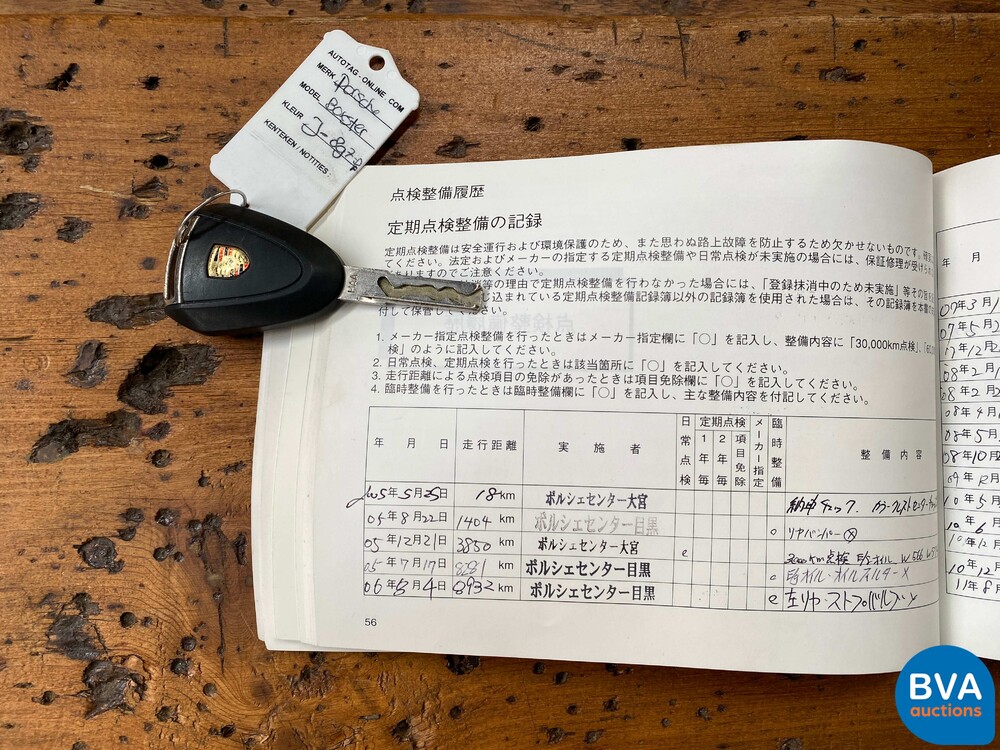 AUTOTAG-ONLINE.COM
MERK Porsche
MODEL Boxster
KLEUR
KENTEKEN / NOTITIES
点検整備履歴
定期点検整備の記録
定期点検整備は安全運行および環境保護のため、また思わぬ路上故障を防止するため欠かせないものです。
てください。法定およびメーカーの指定する定期点検整備や日常点検が未実施の場合には、保証修理が受けられ
ありますのでご注意ください。
等の理由で定期点検整備を行わなかった場合には、「登録抹消中のため未実施」等その旨
込まれている定期点検整備記録簿以外の記録簿を使用された場合は、その記録簿を本
付して保管してください。
1. メーカー指定点検整備を行ったときはメーカー指定欄に「○」を記入し、整備内容に「30,000km点検」、
検」のように記入してください。
2. 日常点検、定期点検を行ったときは該当箇所に「○」を記入してください。
3. 走行距離による点検項目の免除があったときは項目免除欄に「○」を記入してください。
4. 臨時整備を行ったときは臨時整備欄に「○」を記入し、主な整備内容を付記してください。
年 月 日 走行距離 実施者 日常点検 定期点検 1年毎 2年毎 項目免除 メーカー指定 臨時整備 整備内容
05年5月25日 18 km ポルシェセンター大宮 納車チェック
05年8月22日 1404 km ポルシェセンター目黒 リヤバンパー
05年12月21日 3850 km ポルシェセンター大宮 3000km点検
年7月17日 km ポルシェセンター目黒 オイル・オイルフィルター
06年 月4日 8932 km ポルシェセンター目黒 左リヤ・ストップバルブ
56
年 月
07年3月
07年5月
17年12月
08年2月
08年2月
08年4月
08年5月
08年10月
09年12月
10年5月
10年6月
10年12月
10年12月
11年8月
BVA
auctions